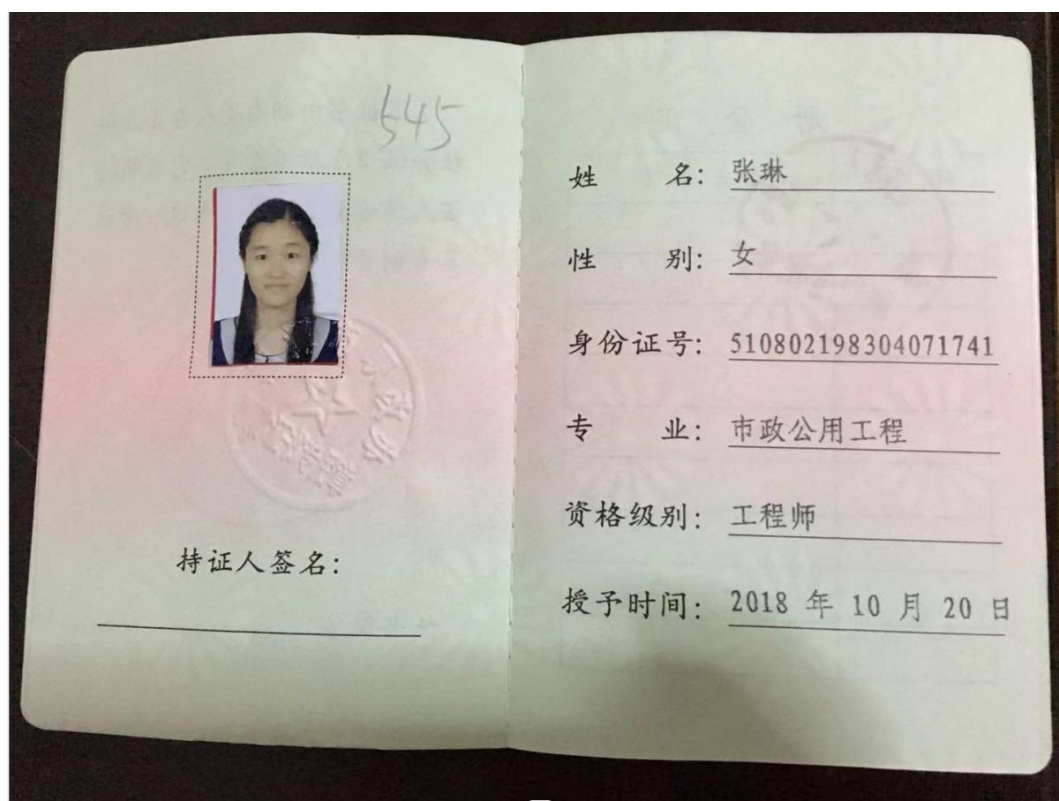 545
持证人签名：
姓 名：张琳
性 别：女
身份证号：510802198304071741
专 业：市政公用工程
资格级别：工程师
授予时间：2018 年 10 月 20 日